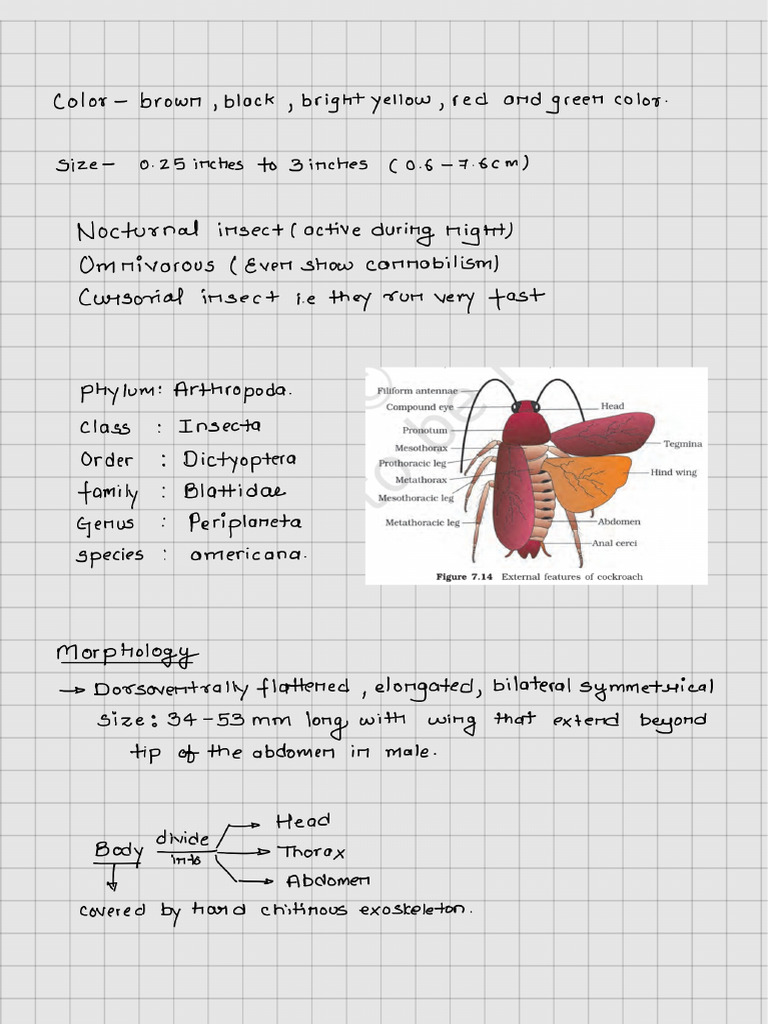 Color - brown, black, bright yellow, red and green color.
Size - 0.25 inches to 3 inches (0.6 - 7.6 cm)
Nocturnal insect (active during night)
Omnivorous (Even show cannobilism)
Cursorial insect i.e they run very fast
Phylum: Arthropoda.
Class : Insecta
Order : Dictyoptera
family : Blattidae
Genus : Periplaneta
species : americana.
Filiform antennae
Compound eye
Head
Pronotum
Tegmina
Mesothorax
Prothoracic leg
Hind wing
Metathorax
Mesothoracic leg
Metathoracic leg
Abdomen
Anal cerci
Figure 7.14 External features of cockroach
© to be r
Morphology
→ Dorsoventrally flattened, elongated, bilateral symmetrical
size: 34-53 mm long with wing that extend beyond
tip of the abdomen in male.
Body divide into → Head
→ Thorax
→ Abdomen
covered by hard chitinous exoskeleton.